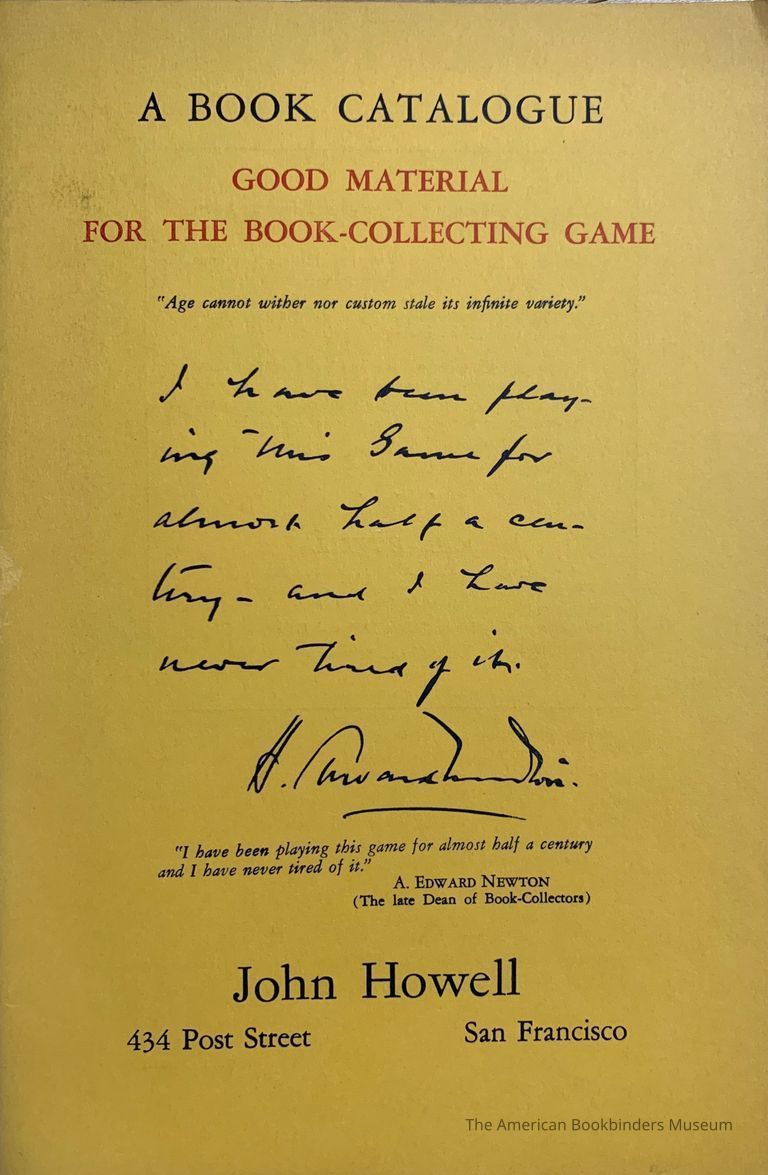 A BOOK CATALOGUE
GOOD MATERIAL
FOR THE BOOK-COLLECTING GAME
"Age cannot wither nor custom stale its infinite variety."
I have been play-
ing this Game for
almost half a cen-
tury - and I have
never tired of it.
A. Edward Newton.
"I have been playing this game for almost half a century
and I have never tired of it."
A. EDWARD NEWTON
(The late Dean of Book-Collectors)
John Howell
434 Post Street San Francisco
The American Bookbinders Museum